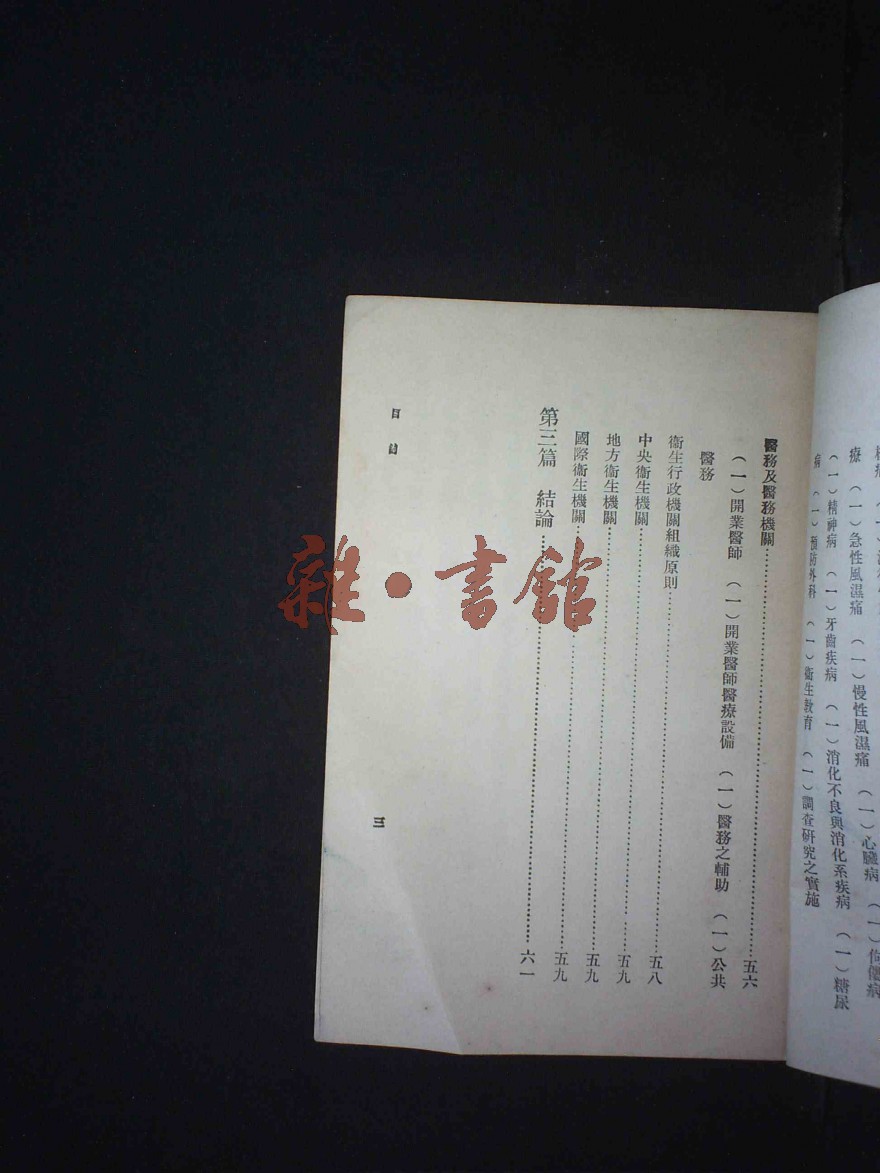 療 （一）急性風濕痛 （一）慢性風濕痛 （一）心臟病 （一）佝僂病
（一）精神病 （一）牙齒疾病 （一）消化不良與消化系疾病 （一）糖尿
病 （一）預防外科 （一）衞生教育 （一）調查研究之實施
醫務及醫務機關……五六
（一）開業醫師 （一）開業醫師醫療設備 （一）醫務之輔助 （一）公共
醫務
衞生行政機關組織原則……五八
中央衞生機關……五九
地方衞生機關……五九
國際衞生機關……五九
第三篇 結論……六一
目錄
三
雜·書館